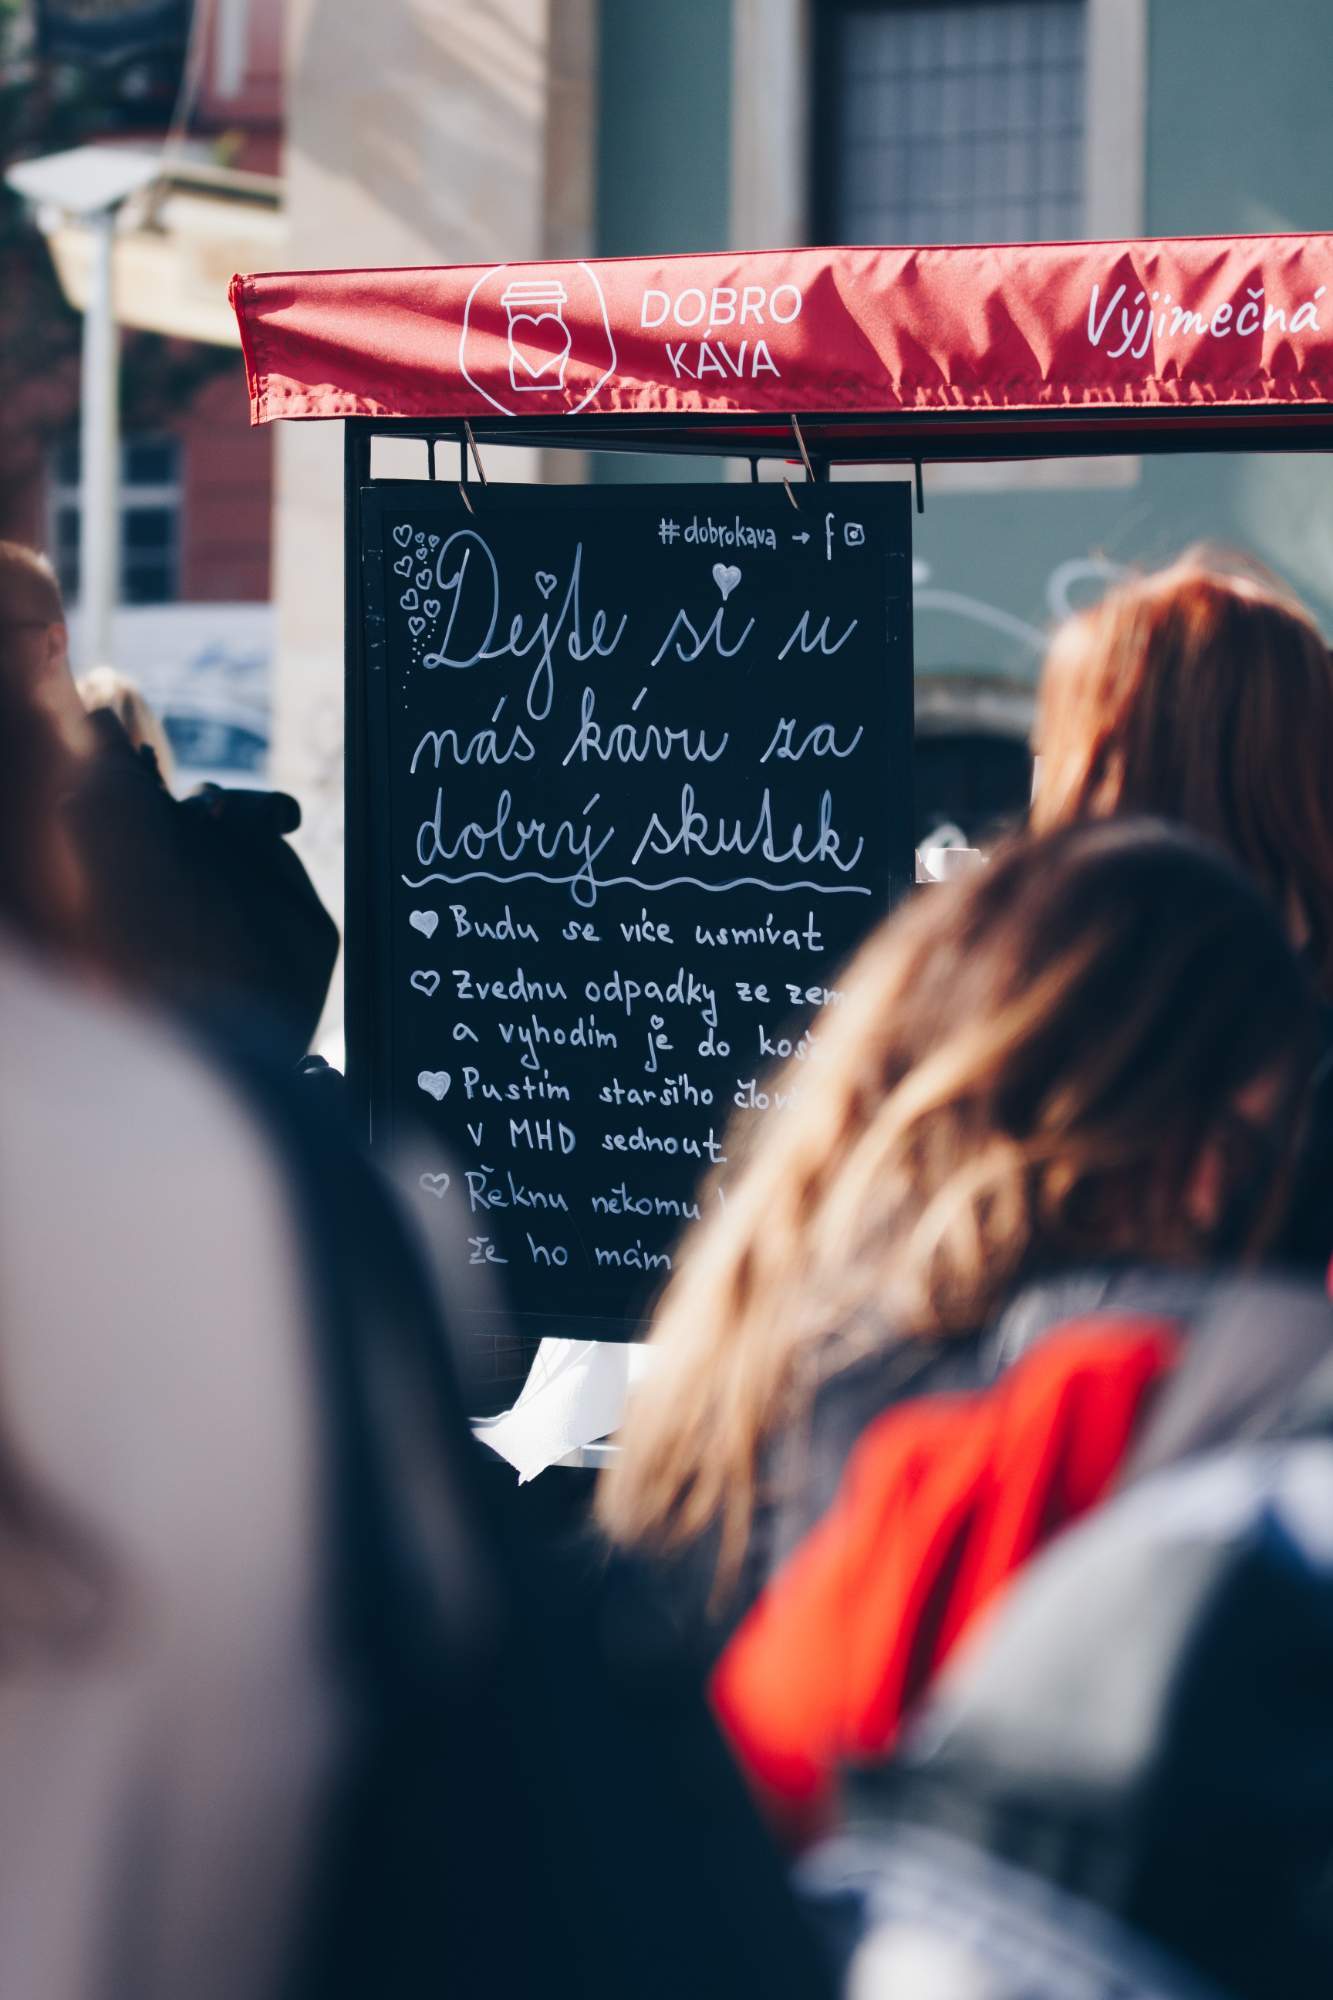 DOBRO
KÁVA
Výjimečná
#dobrokava → f
Dejte si u
nás kávu za
dobrý skutek
Budu se více usmívat
Zvednu odpadky ze
a vyhodím je do
Pustím staršího
v MHD sednout
Řeknu někomu
že ho mám